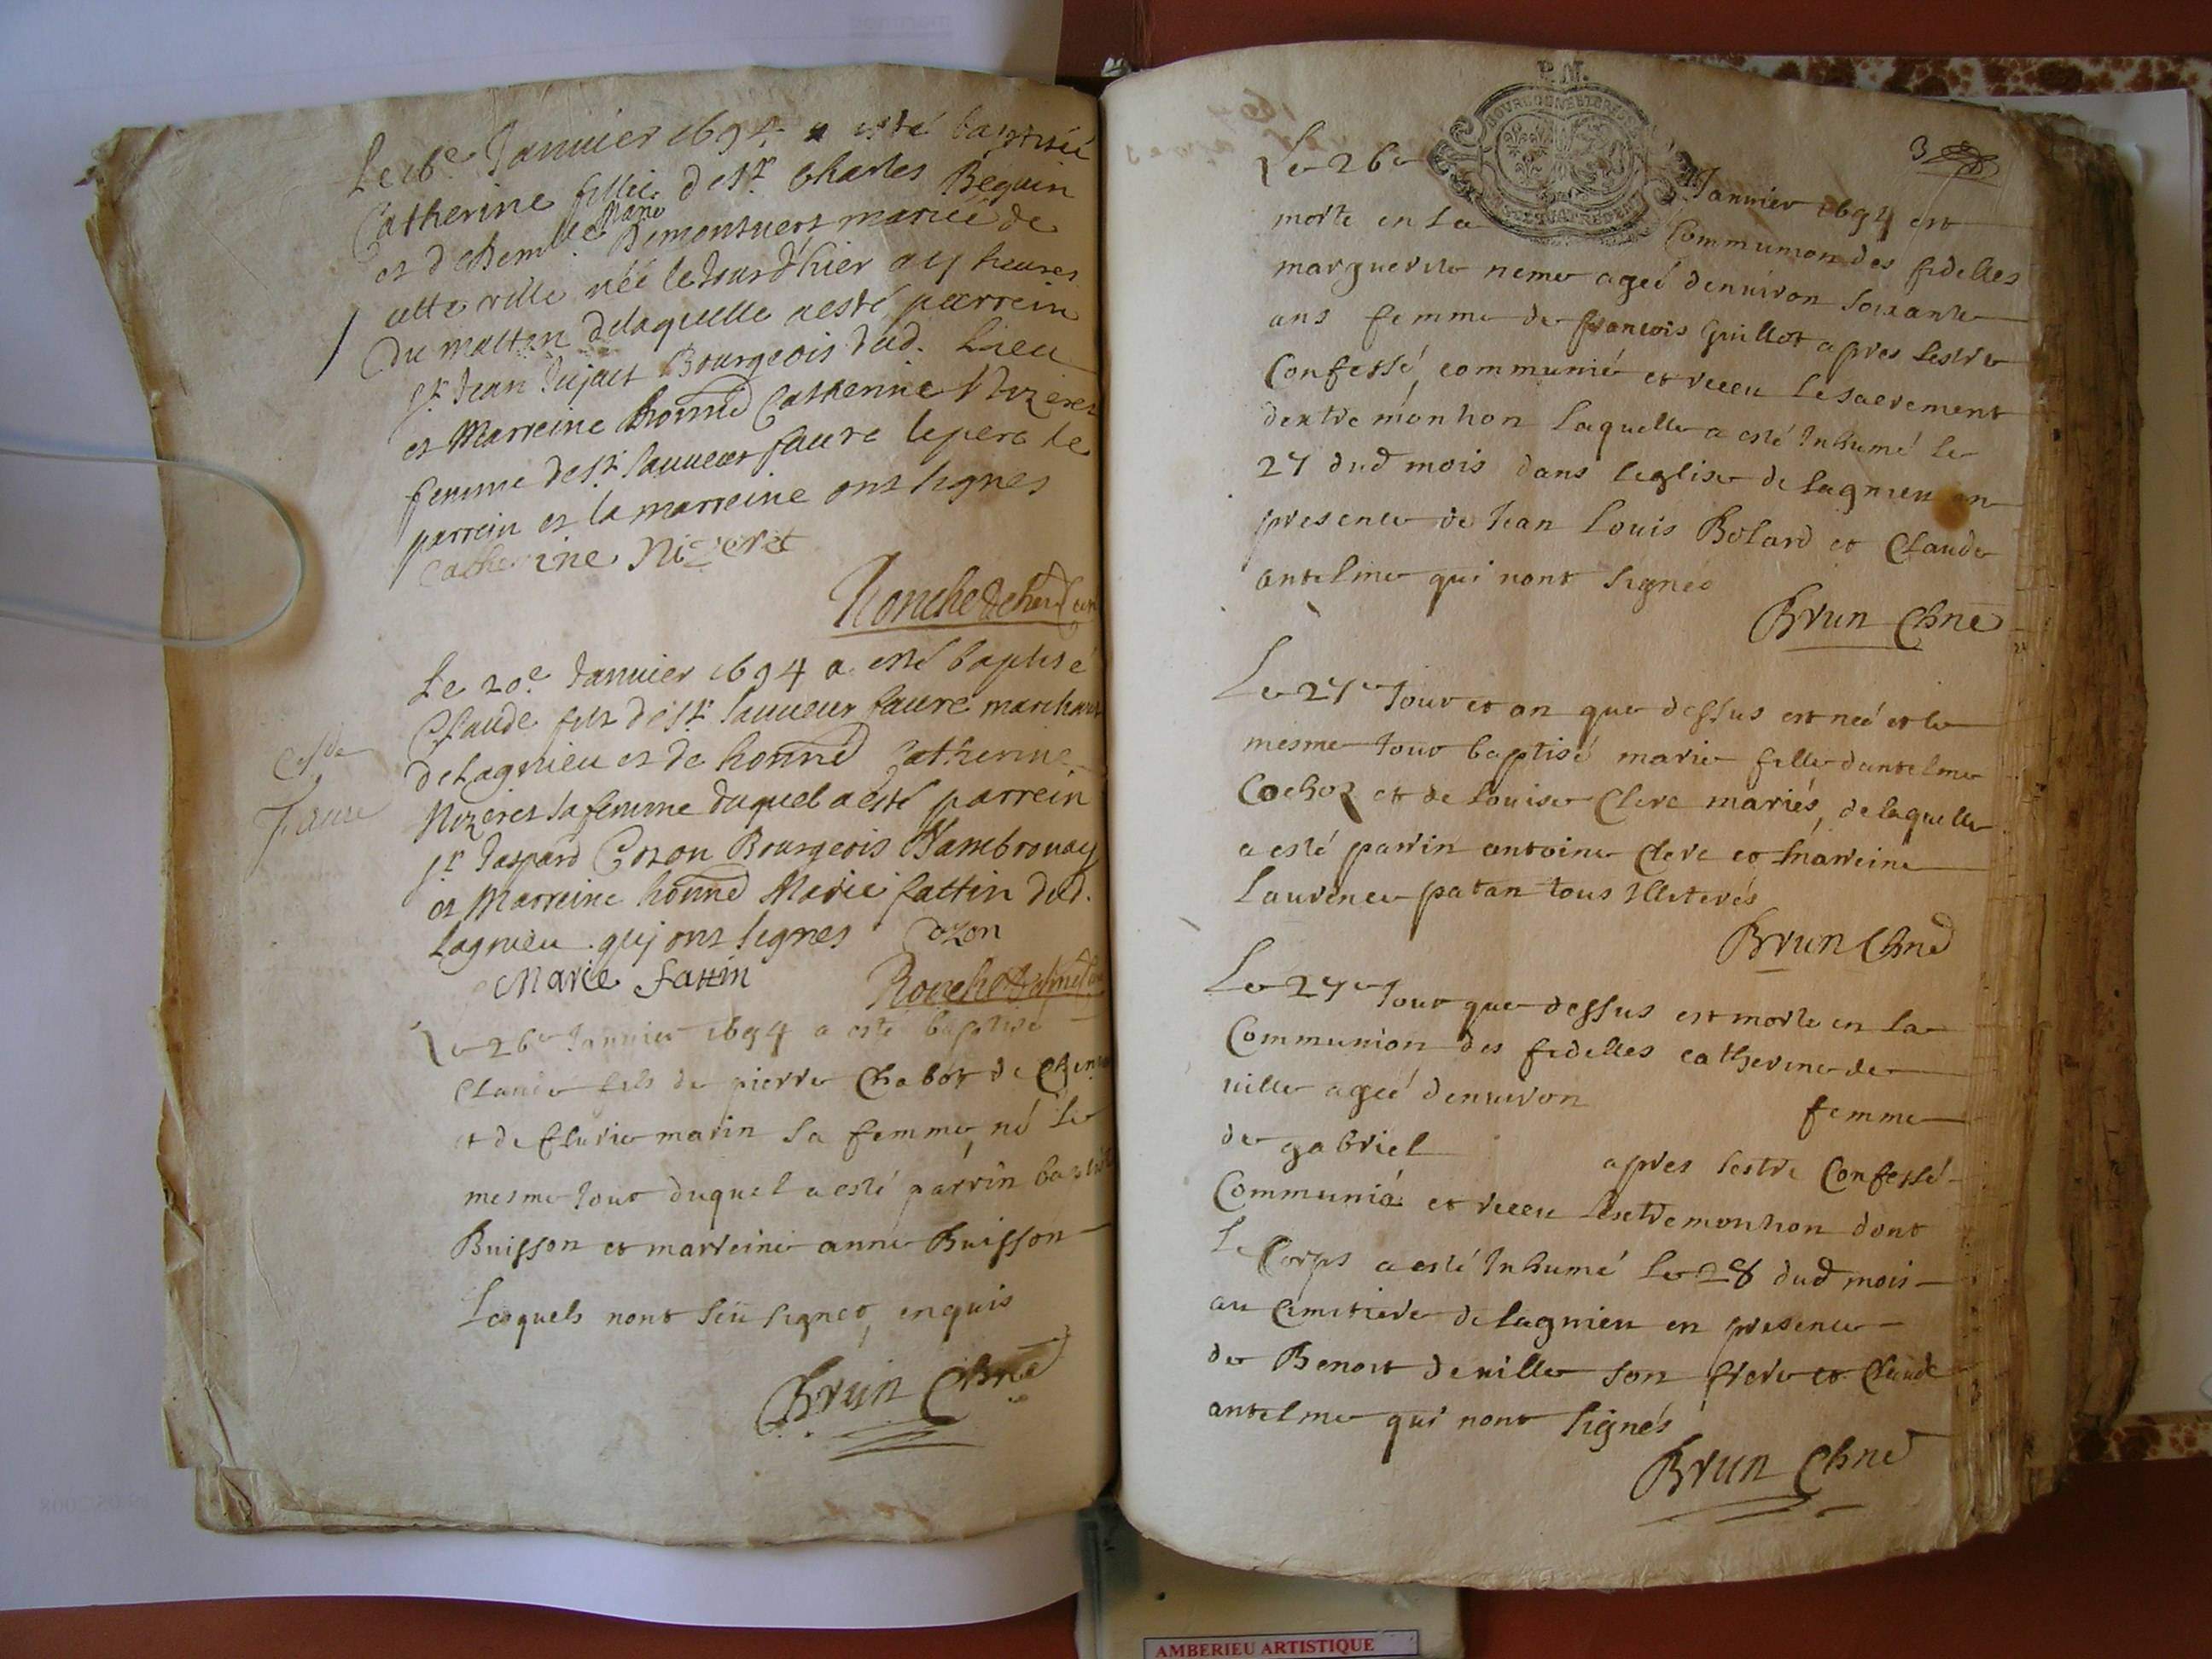 Le 16e Januier 1694 a esté baptisée
Catherine fillie de Sr. Charles Beguin
et de dem.lle Marie Demontuert mariée de
cette ville née le Jour d'hier a 4 heures
du mattin delaquelle a esté parrein
Sr. Jean Dujact Bourgeois dud. Lieu
et Marreine honne Catherine Nizeret
femme de Sr. Sauueur faure le pere le
parrein et la marreine ont signes
Catherine Nizeret
Le 20e. Januier 1694 a esté baptisé
Claude fils de Sr. Sauueur faure marchant
de Lagnieu et de honne Catherine
Nizeret sa femme duquel a esté parrein
Sr. Gaspard Cozon Bourgeois D'ambronay
et Marreine honne Marie fattin dud.
Lagnieu quj ont signes Cozon
Marie fattin
faure
Le 26e Januier 1694 a esté baptisé
Claude fils de pierre Chabot de
et de flurie marin sa femme, né le
mesme Jour duquel a esté parrin
Buisson et marreine anne Buisson
Lesquels nont sceu signer, enquis
Brun Chne
P.N.
3
Le 26e Januier 1694 est
morte en La Communion des fidelles
marguerite neme ageé denuiron soixante
ans femme de francois Guillot apres sestre
Confessé, communié et receu le sacrement
dextremonhon Laquelle a esté Inhumé le
27 dud mois dans leglise de Lagnieu en
presence de Jean Louis Bolard et Claude
antelme qui nont signés
Brun Chne
Le 27e Jour et an que dessus est neé et le
mesme Jour baptisé marie fille dantelme
Cochoz et de Louise Clerc mariés, de laquelle
a esté parrin antoine Clerc et marreine
Laurence patan tous Illiterés
Brun Chne
Le 27e Jour que dessus est morte en La
Communion des fidelles catherine de
uille ageé denuiron femme
de gabriel apres sestre Confessé
Communiá et receu lextremonhon dont
Le Corps a esté Inhumé Le 28 dud mois
au Cimitiere de Lagnieu en presence
de Benoit deuille son frere et Claude
antelme qui nont signés
Brun Chne
AMBERIEU ARTISTIQUE